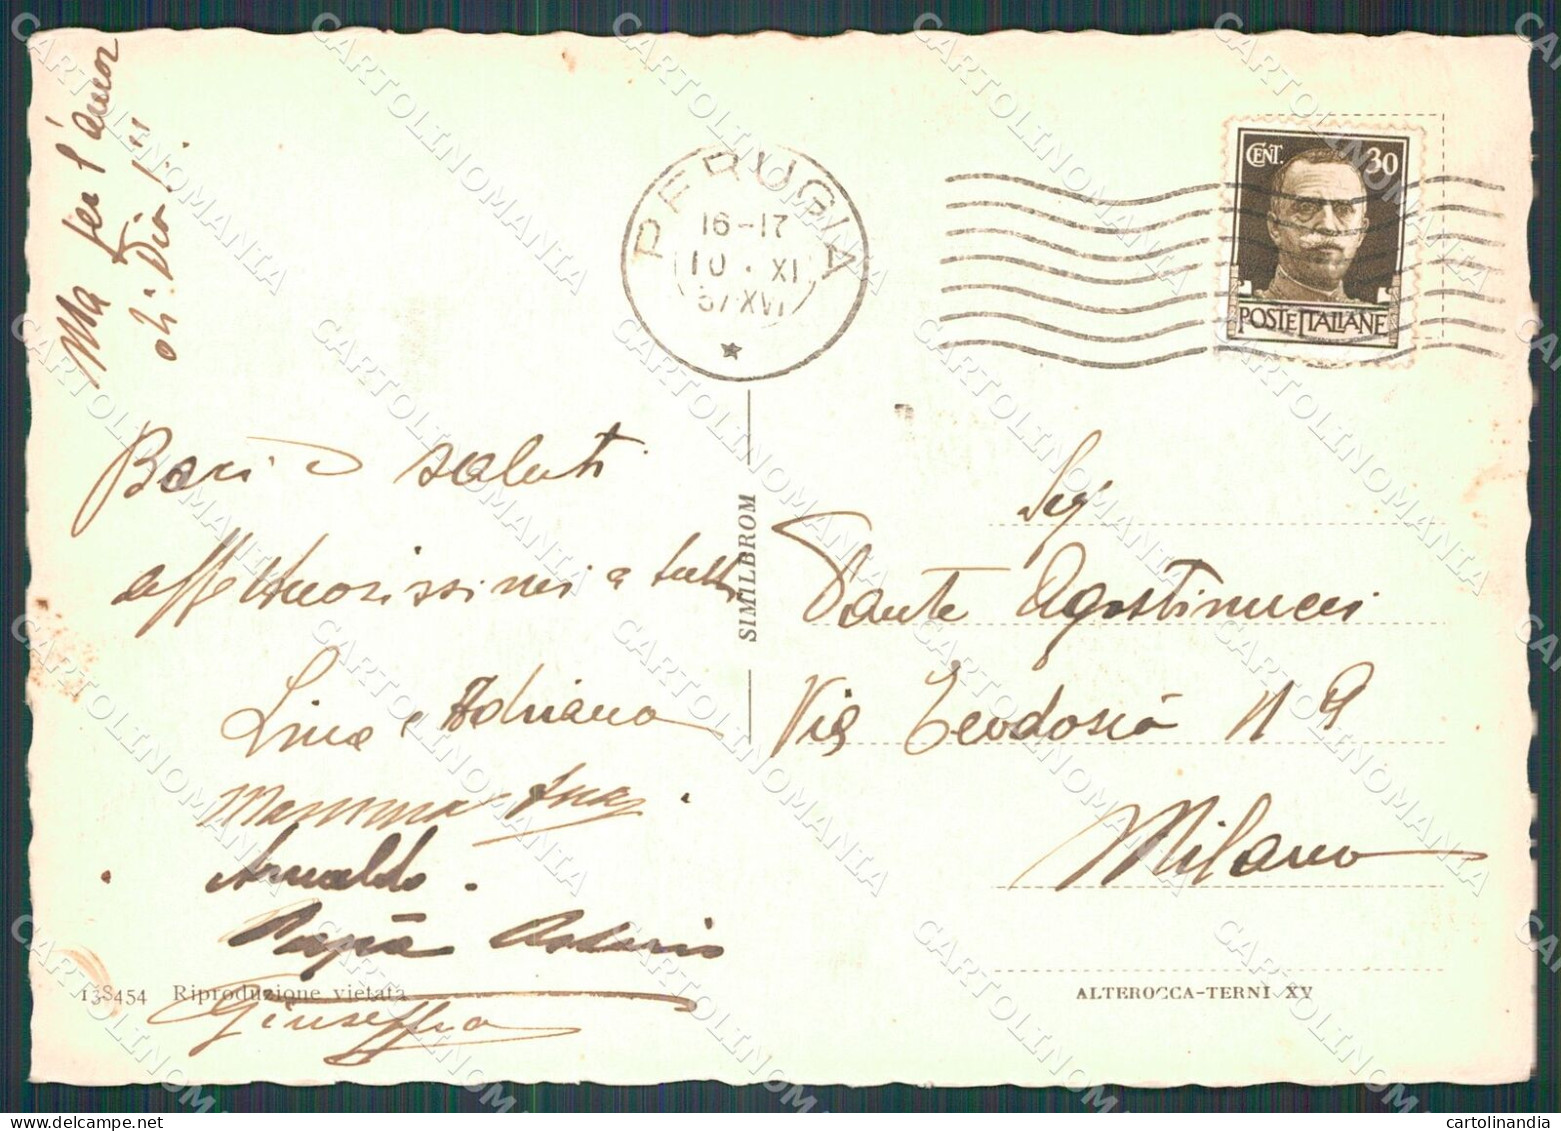 Ma per l'amor
di Dio!!!
PERUGIA
16-17
10 · XI
37 XVI
CENT. 30
POSTE ITALIANE
Baci e saluti
affettuosissimi a tutti
Lina e Adriana
Mamma
Arnaldo.
Papà
Giuseffina
SIMILBROM
Sig
Dante Agostinucci
Via Teodosio N 9
Milano
138454 Riproduzione vietata
ALTEROCCA-TERNI XV
CARTOLINOMANIA
cartolinandia